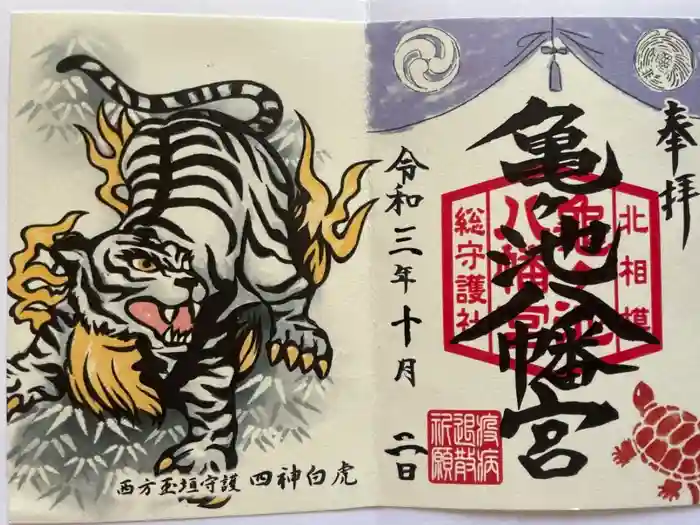 奉拝
亀ヶ池八幡宮
北相模
亀ヶ池
八幡宮
総守護社
令和三年十月二日
疫病
退散
祈願
西方玉垣守護 四神白虎